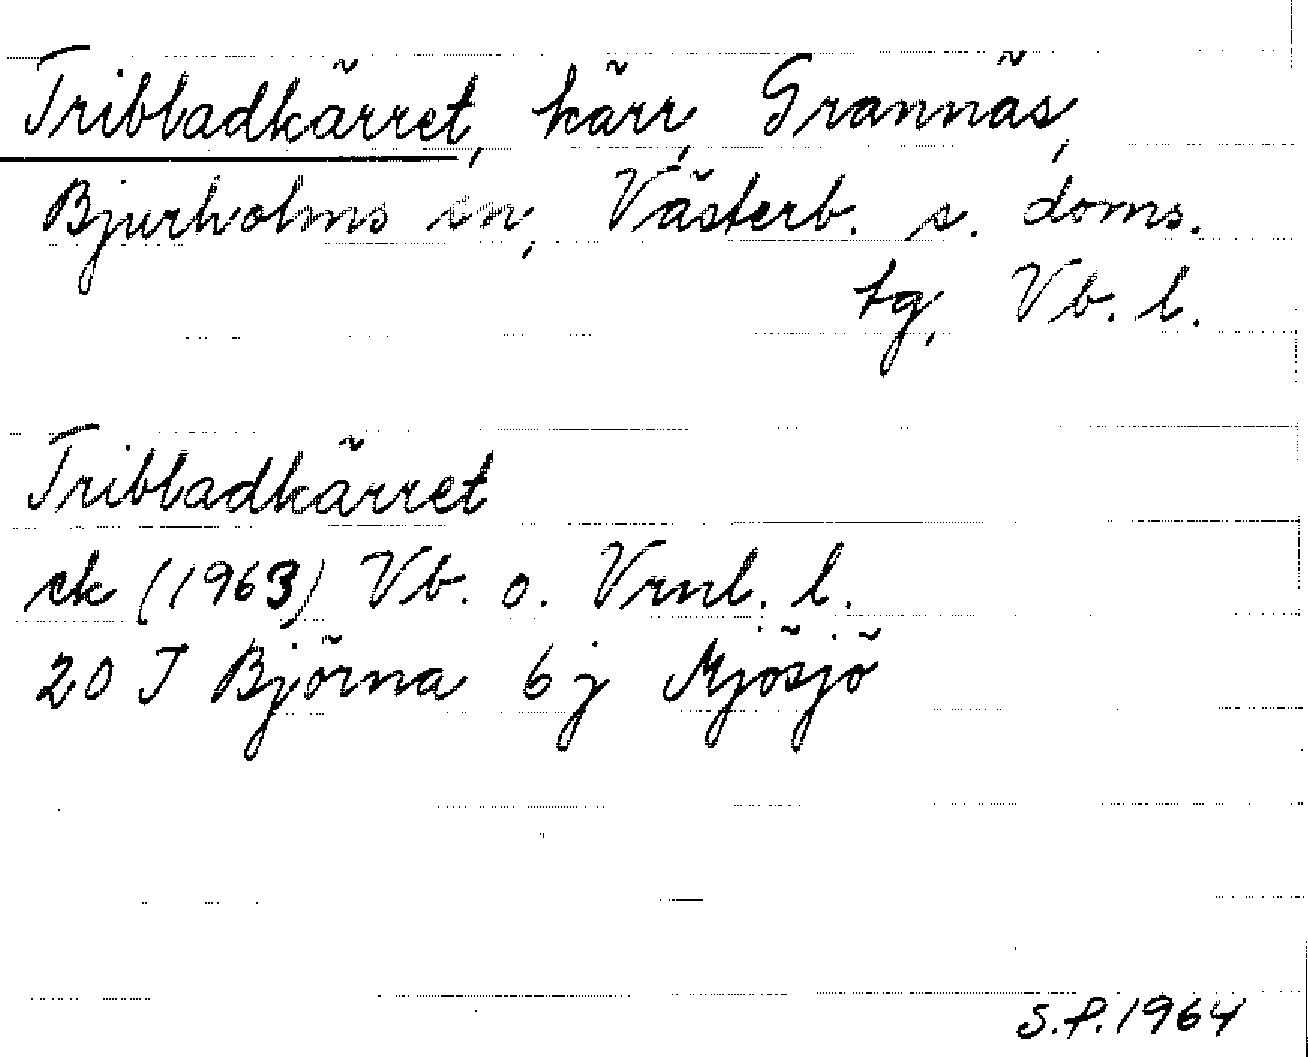 Tribladkärret, kärr, Grannäs,
Bjurholms sn, Västerb. s. doms.
tg, Vb. l.
Tribladkärret
ek (1963) Vb. o. Vrnl. l.
20 J Björna 6 j Mjösjö
S.P. 1964